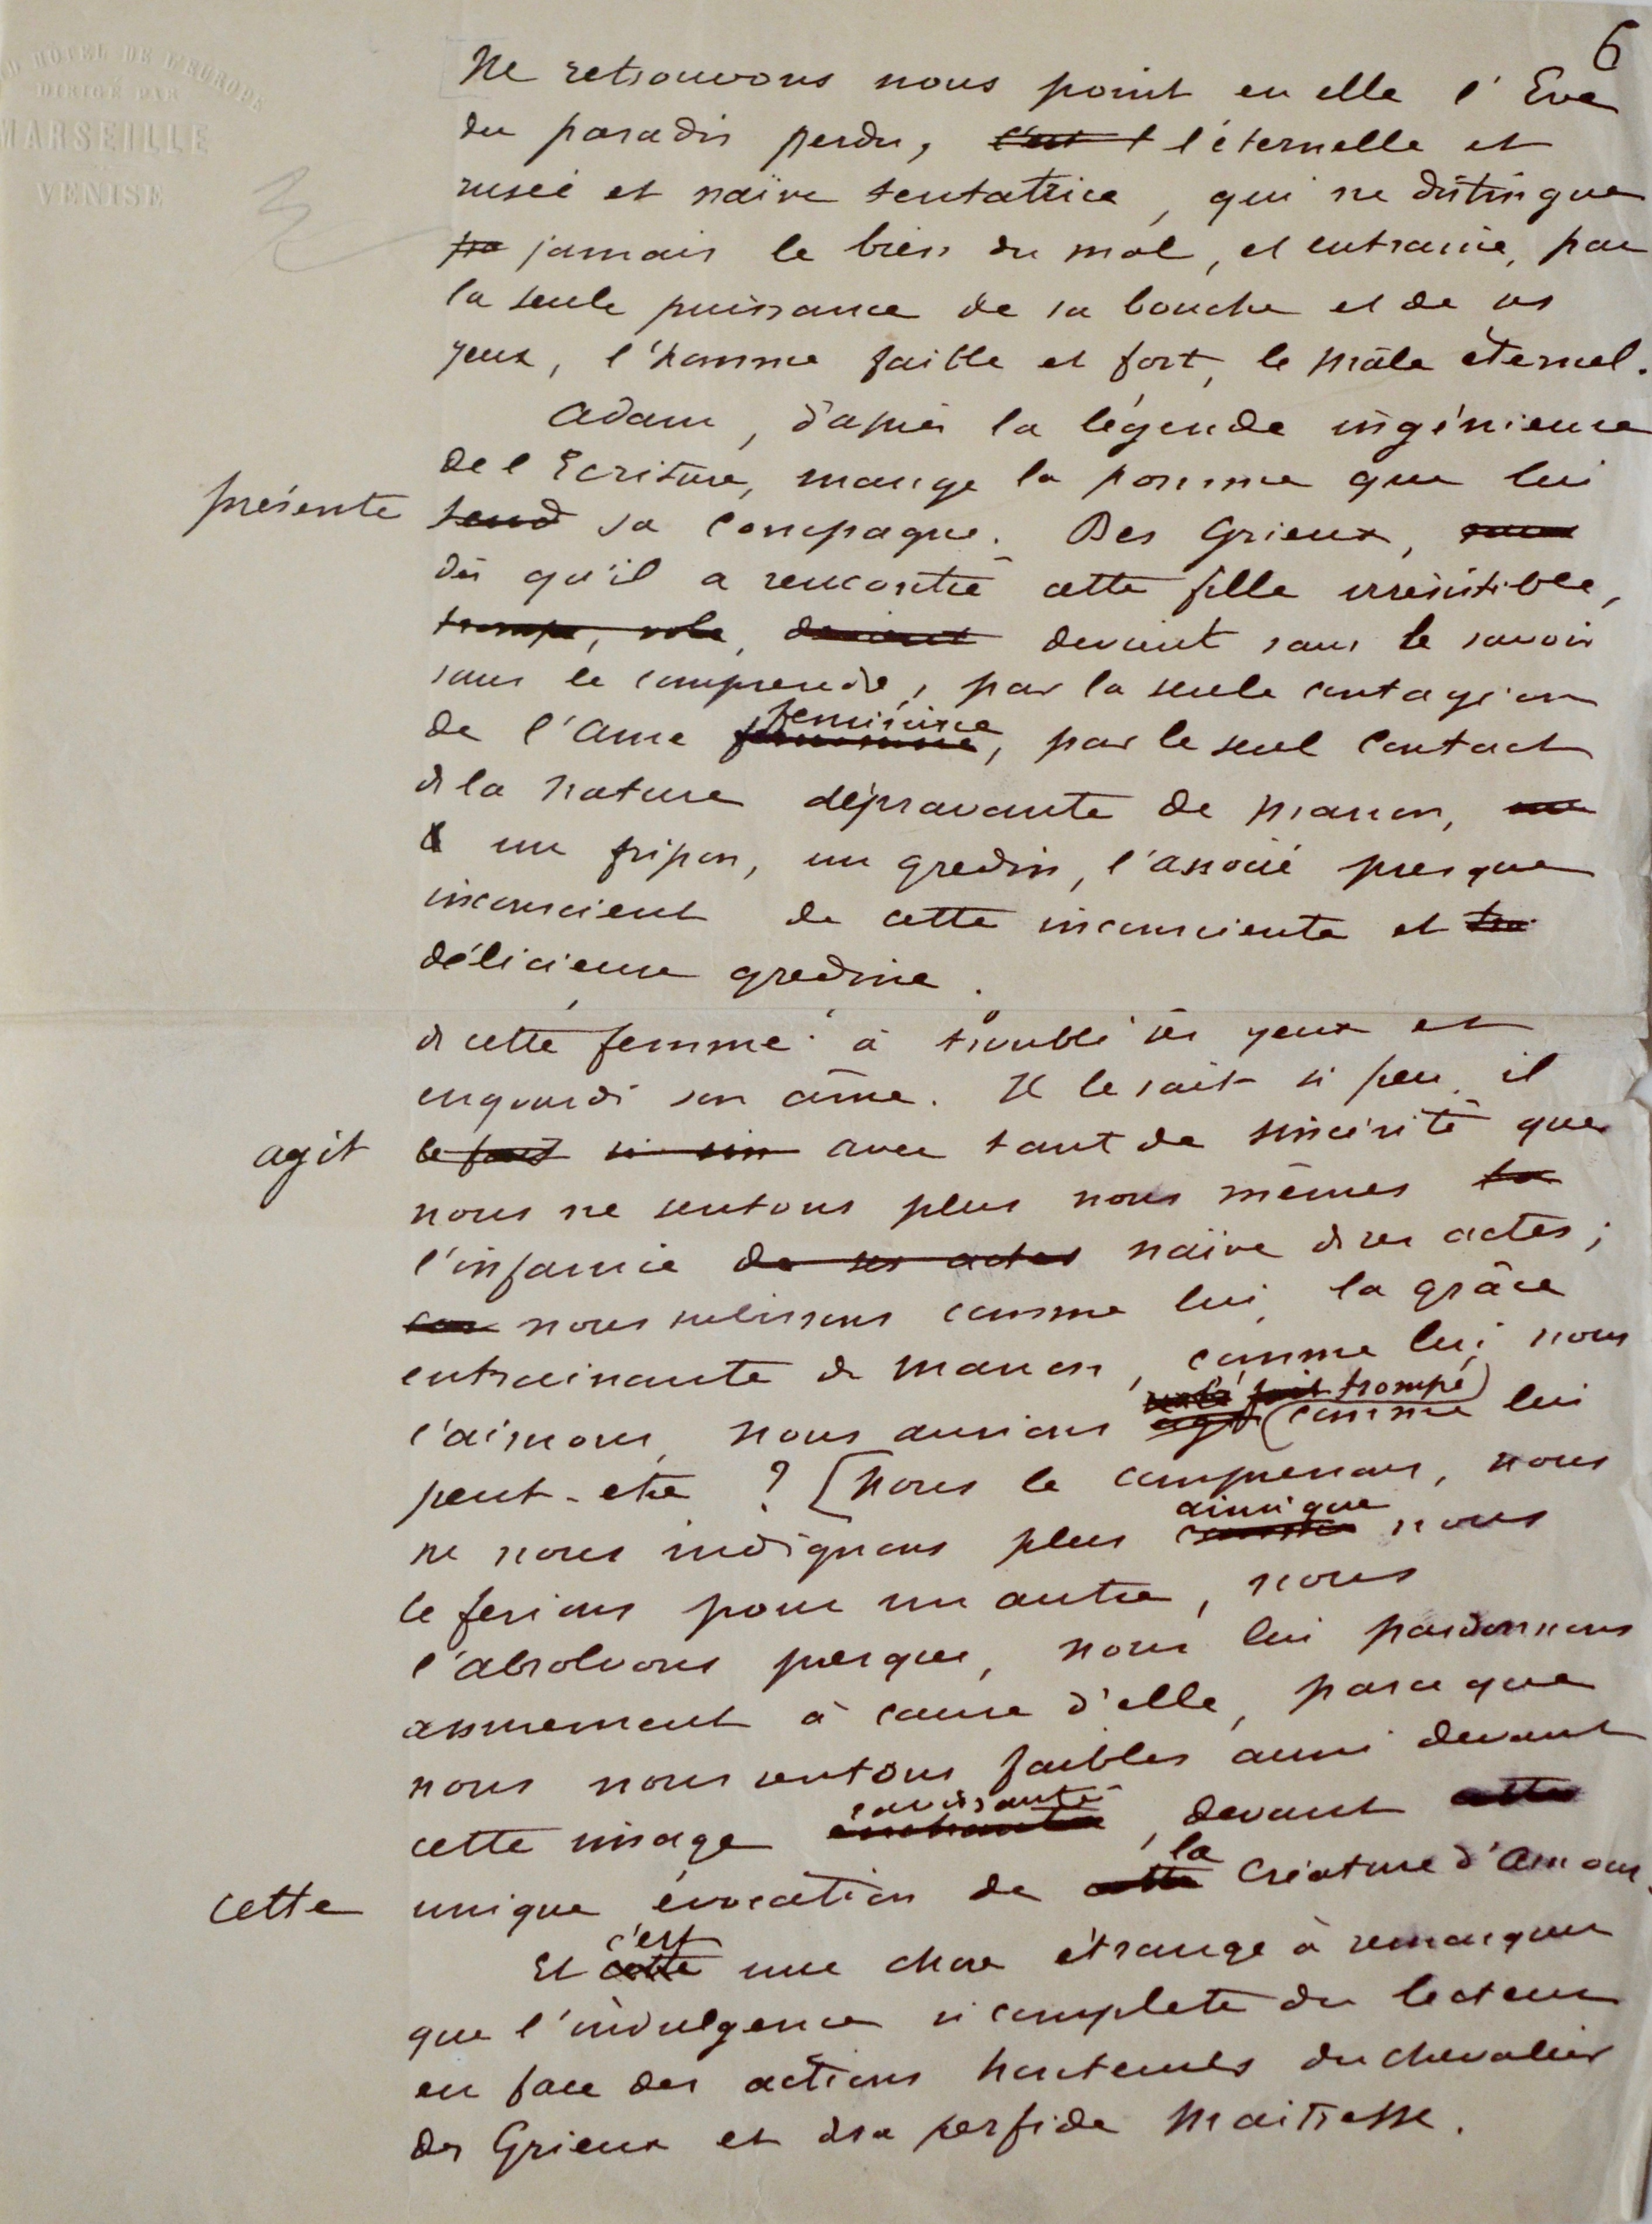 6
D HOTEL DE L'EUROPE
DIRIGÉ PAR
MARSEILLE
VENISE
Ne retrouvons nous point en elle l'Eve
du paradis perdu, c'est l l'éternelle et
rusée et naïve tentatrice, qui ne distingue
pa jamais le bien du mal, et entraine, par
la seule puissance de sa bouche et de ses
yeux, l'homme faible et fort, le mâle éternel.
Adam, d'après la légende ingénieuse
de l'Ecriture, mange la pomme que lui
présente tend sa compagne. Des Grieux,
dès qu'il a rencontré cette fille irrésistible,
trompe, vole, devient devient sans le savoir
sans le comprendre, par la seule contagion
de l'ame feminine, par le seul contact
de la nature dépravante de Manon, un
un fripon, un gredin, l'associé presque
inconscient de cette inconsciente et
délicieuse gredine.
de cette femme à troublé ses yeux et
engourdi son âme. Il le sait si peu, il
agit le fait si sin avec tant de sincérité que
nous ne sentons plus nous mêmes la
l'infamie de ses actes naïve de ses actes;
car nous subissons comme lui, la grâce
entrainante de Manon, comme lui nous
fait trompé)
l'aimons, nous aurions agi (comme lui
peut-etre ? [Nous le comprenons, nous
ainsi que
ne nous indignons plus comme nous
le ferions pour un autre, nous
l'absolvons presque, nous lui pardonnons
assurement à cause d'elle, parce que
nous nous sentons faibles aussi devant
ravissante
cette image enchante, devant cette
la
cette unique évocation de cette Créature d'Amour.
c'est
Et cette une chose étrange à remarquer
que l'indulgence si complete du lecteur
en face des actions honteuses du chevalier
des Grieux et de sa perfide Maitresse.